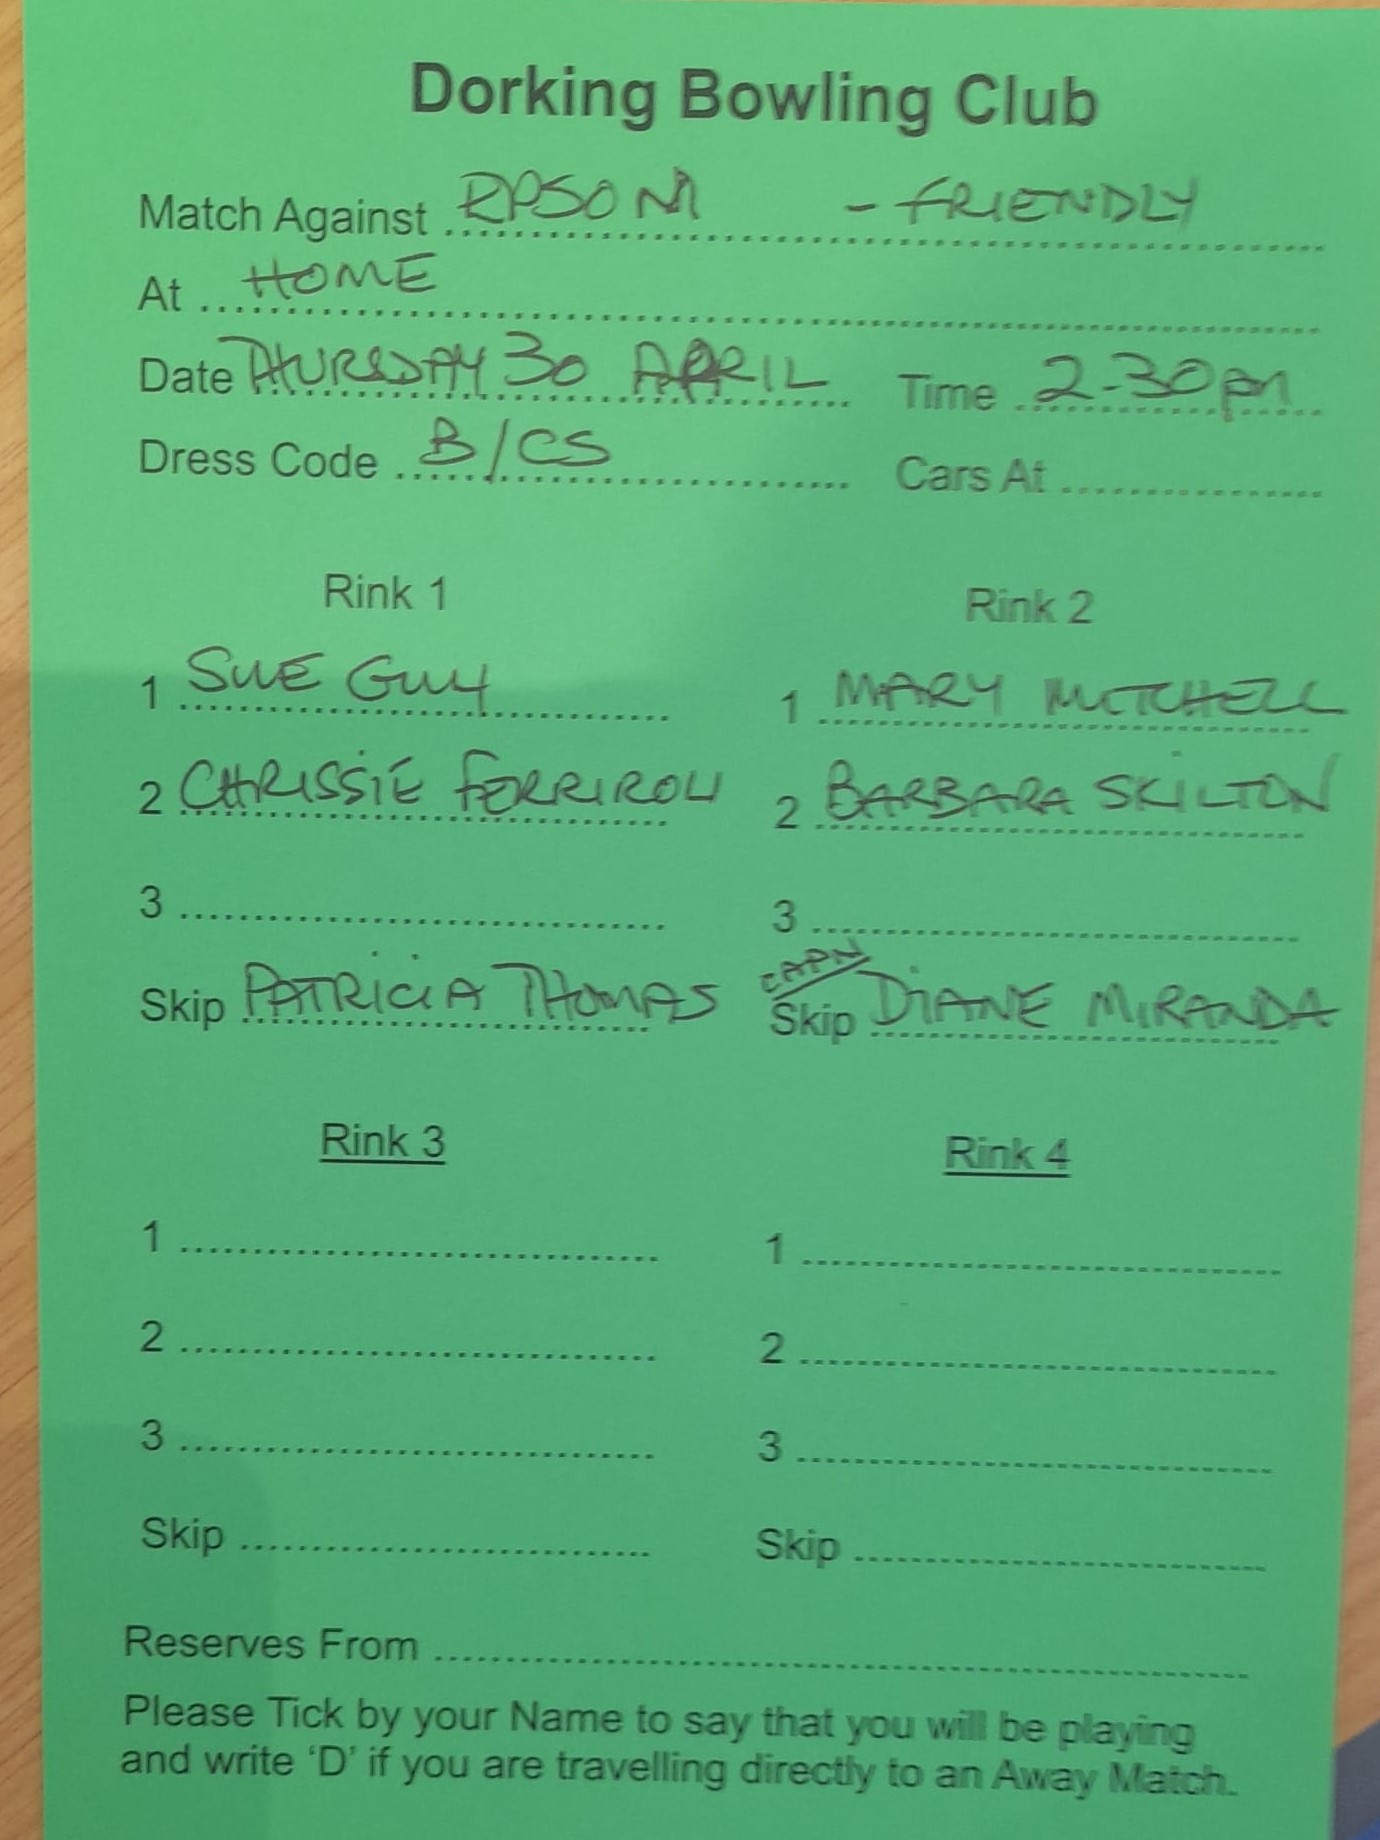 Dorking Bowling Club
Match Against EPSOM - FRIENDLY
At HOME
Date THURSDAY 30 APRIL Time 2-30pm
Dress Code B/CS Cars At
Rink 1
1 SUE GUY
2 CHRISSIE FERRIROLI
3
Skip PATRICIA THOMAS
Rink 2
1 MARY MITCHELL
2 BARBARA SKILTON
3
CAPN
Skip DIANE MIRANDA
Rink 3
1
2
3
Skip
Rink 4
1
2
3
Skip
Reserves From
Please Tick by your Name to say that you will be playing
and write 'D' if you are travelling directly to an Away Match.